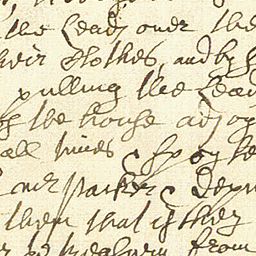 the Leads over the
their Clothes, and by
pulling the Lead
of the house adjoy
all times & spoyle
our Parkes &
them that if they
from